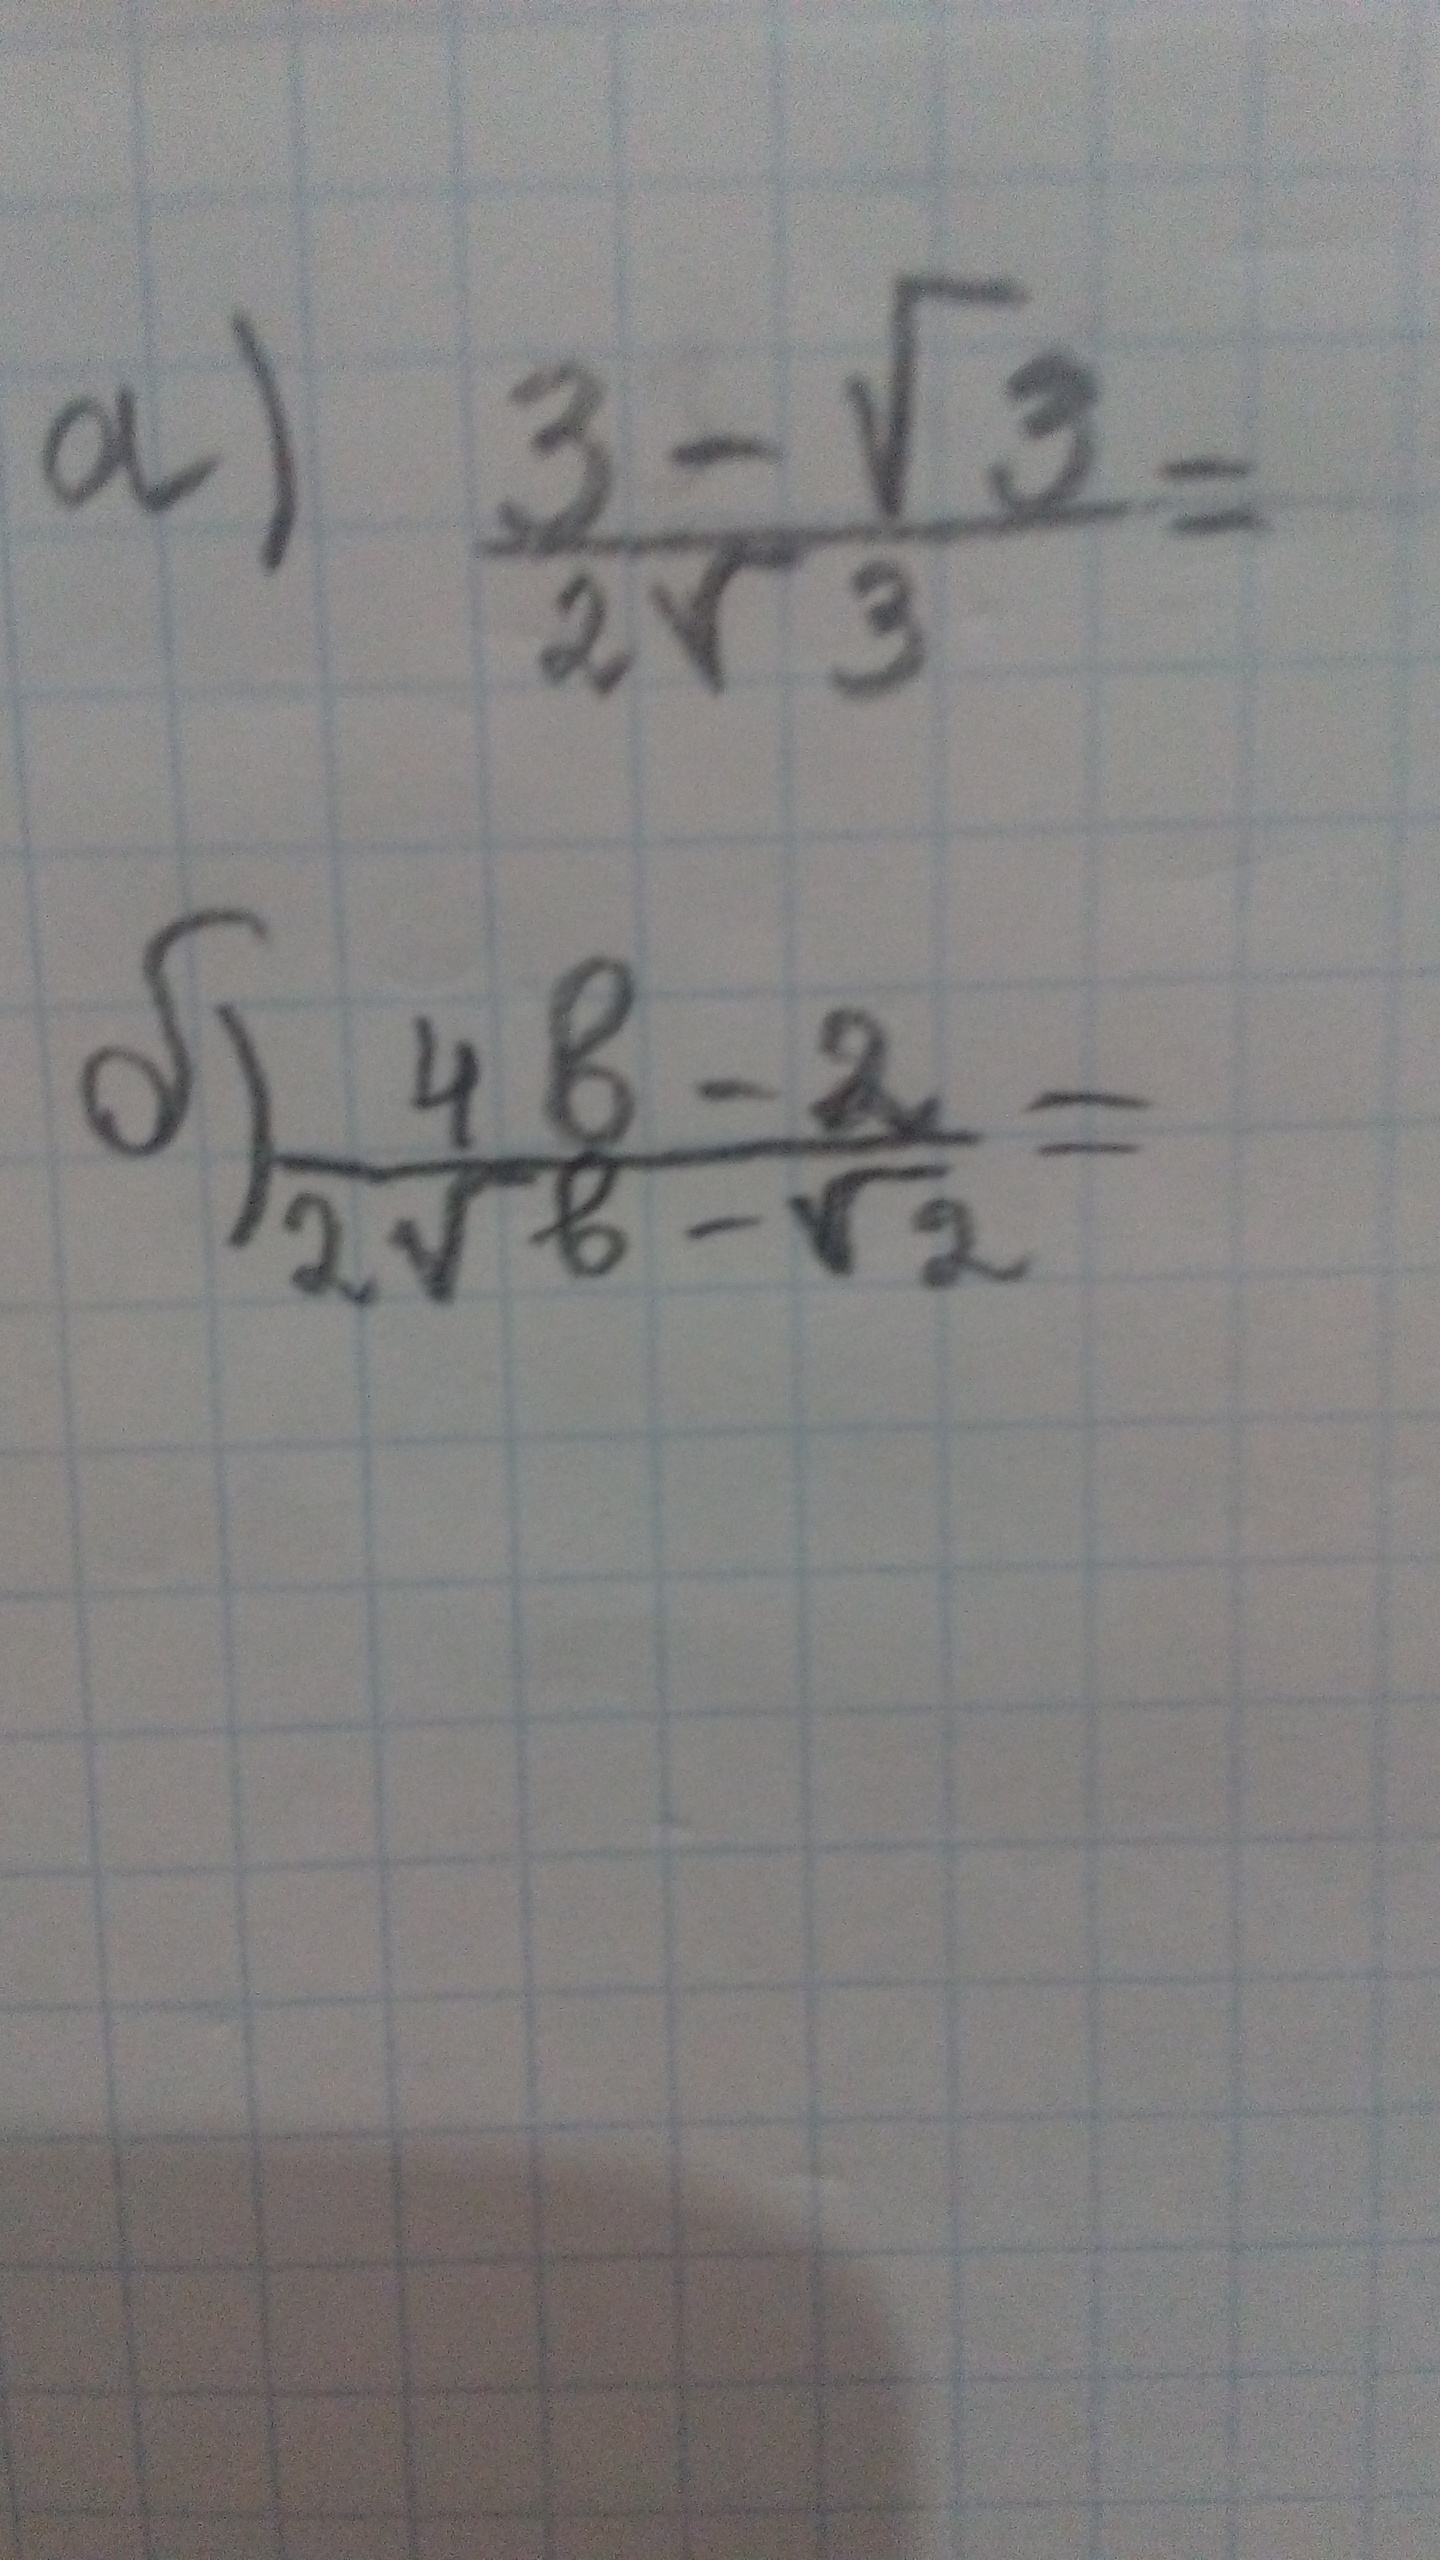 а) 3 - √3 =
2√3
б) 4в - 2 =
2√в - √2